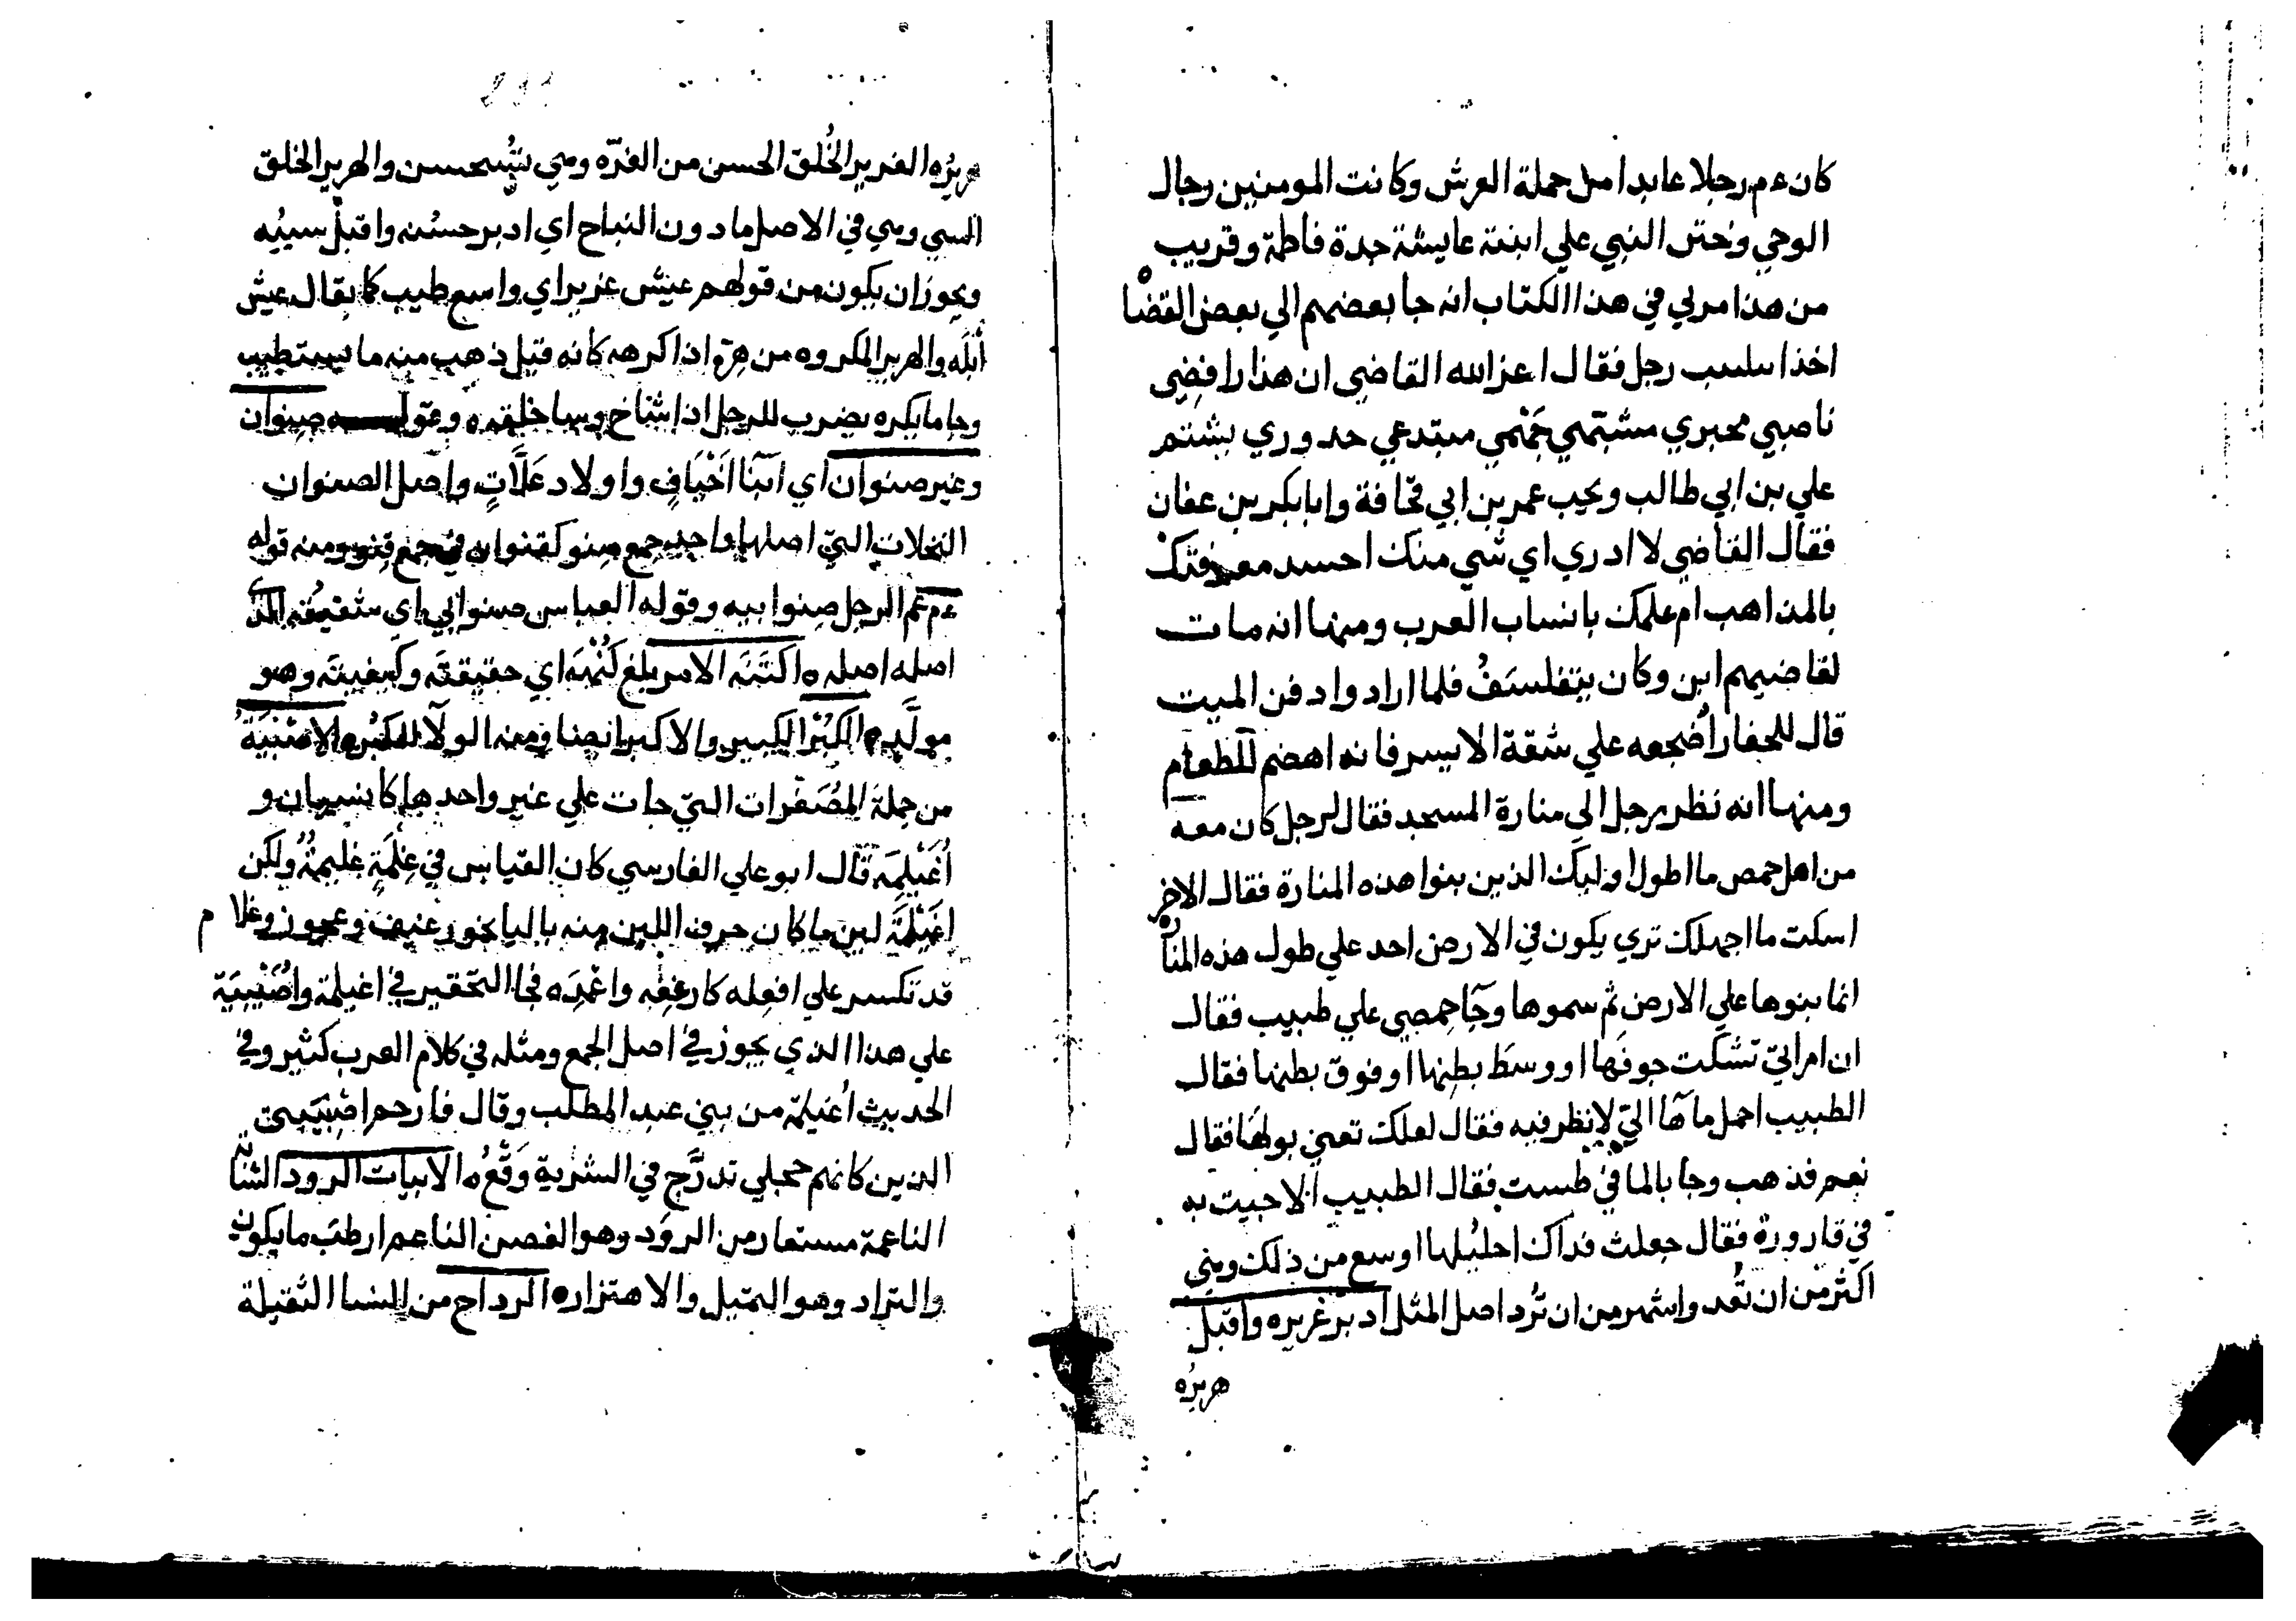 كان ءم رجلا عابدا من حملة العرش وكانت المومنين رجال
الوحي وختن النبي علي ابنته عايشة جدة فاطمة وقريب
من هذا مر بي في هذا الكتاب انه جا بعضهم الي بعض القضاة
اخذا بتلبيب رجل فقال اعز الله القاضي ان هذا رافضي
ناصبي مجبري مشبهي جهمي مبتدعي حدوري يشتم
علي بن ابي طالب ويحب عمر بن ابي قحافة وابابكر بن عفان
فقال القاضي لا ادري اي شي منك احسد معرفتك
بالمذاهب ام علمك بانساب العرب ومنها انه مات
لقاضيهم ابن وكان يتفلسف فلما ارادوا دفن الميت
قال للحفار اضجعه علي شقة الايسر فانه اهضم للطعام
ومنها انه نظر رجل الي منارة المسجد فقال لرجل كان معه
من اهل حمص ما اطول اوليك الذين بنوا هذه المنارة فقال الاخر
اسكت ما اجهلك تري يكون في الارض احد علي طول هذه المنارة
انما بنوها علي الارض ثم سموها وجا حمصي علي طبيب فقال
ان امراتي تشكت جوفها او وسط بطنها او فوق بطنها فقال
الطبيب احمل ماها الي لانظر فيه فقال لعلك تعني بولها فقال
نعم فذهب وجا بالما في طست فقال الطبيب الا جيت به
في قارورة فقال جعلت فداك احليلها اوسع من ذلك وهي
اكثر من ان تعد واشهر من ان ترد اصل المثل ادبر غريره واقبل
هريره
هريره الغرير الخلق الحسن من الغرة وهي تستحسن والهرير الخلق
السي وهي في الاصل ما دون النباح اي ادبر حسنه واقبل سييه
ويجوز ان يكون من قولهم عيش غرير اي واسع طيب كما يقال عيش
ابله والهرير المكروه من هره اذا كرهه كانه قيل ذهب منه ما يستطيب
وجا ما يكره يضرب للرجل اذا شاخ وسا خلقه وقوله صنوان
وغير صنوان اي ابنا اخياف واولاد علات واصل الصنوان
النخلات التي اصلها واحد جمع صنو كقنوان في جمع قنو ومنه قوله
ءم عم الرجل صنو ابيه وقوله العباس صنو ابي اي شقيقه الذي
اصله اصله اكتنه الامر بلغ كنهه اي حقيقته وكيفيته وهو
مولد الكبر الكبير والاكبر ايضا ومنه الولا للكبر الاصيبية
من جملة المصغرات التي جات علي غير واحدها كانيسيان و
اغيلمة قال ابو علي الفارسي كان القياس في غلمة غليمة ولكن
اغيلمة لين ما كان حرف اللين منه باليا نحو رغيف وعمود وغلام
قد تكسر علي افعله كارغفه واعمده فجا التحقير في اغيلمة واصيبية
علي هذا الذي يجوز في اصل الجمع ومثله في كلام العرب كثير وفي
الحديث اغيلمة من بني عبد المطلب وقال فارحم اصيبيتي
الذين كانهم حجلي تدرج في الشربة وقع الابيات الرود الشابة
الناعمة مستعار من الرود وهو الغصن الناعم ارطب ما يكون
والتراد وهو التميل والاهتزاز الرداح من النسا الثقيلة